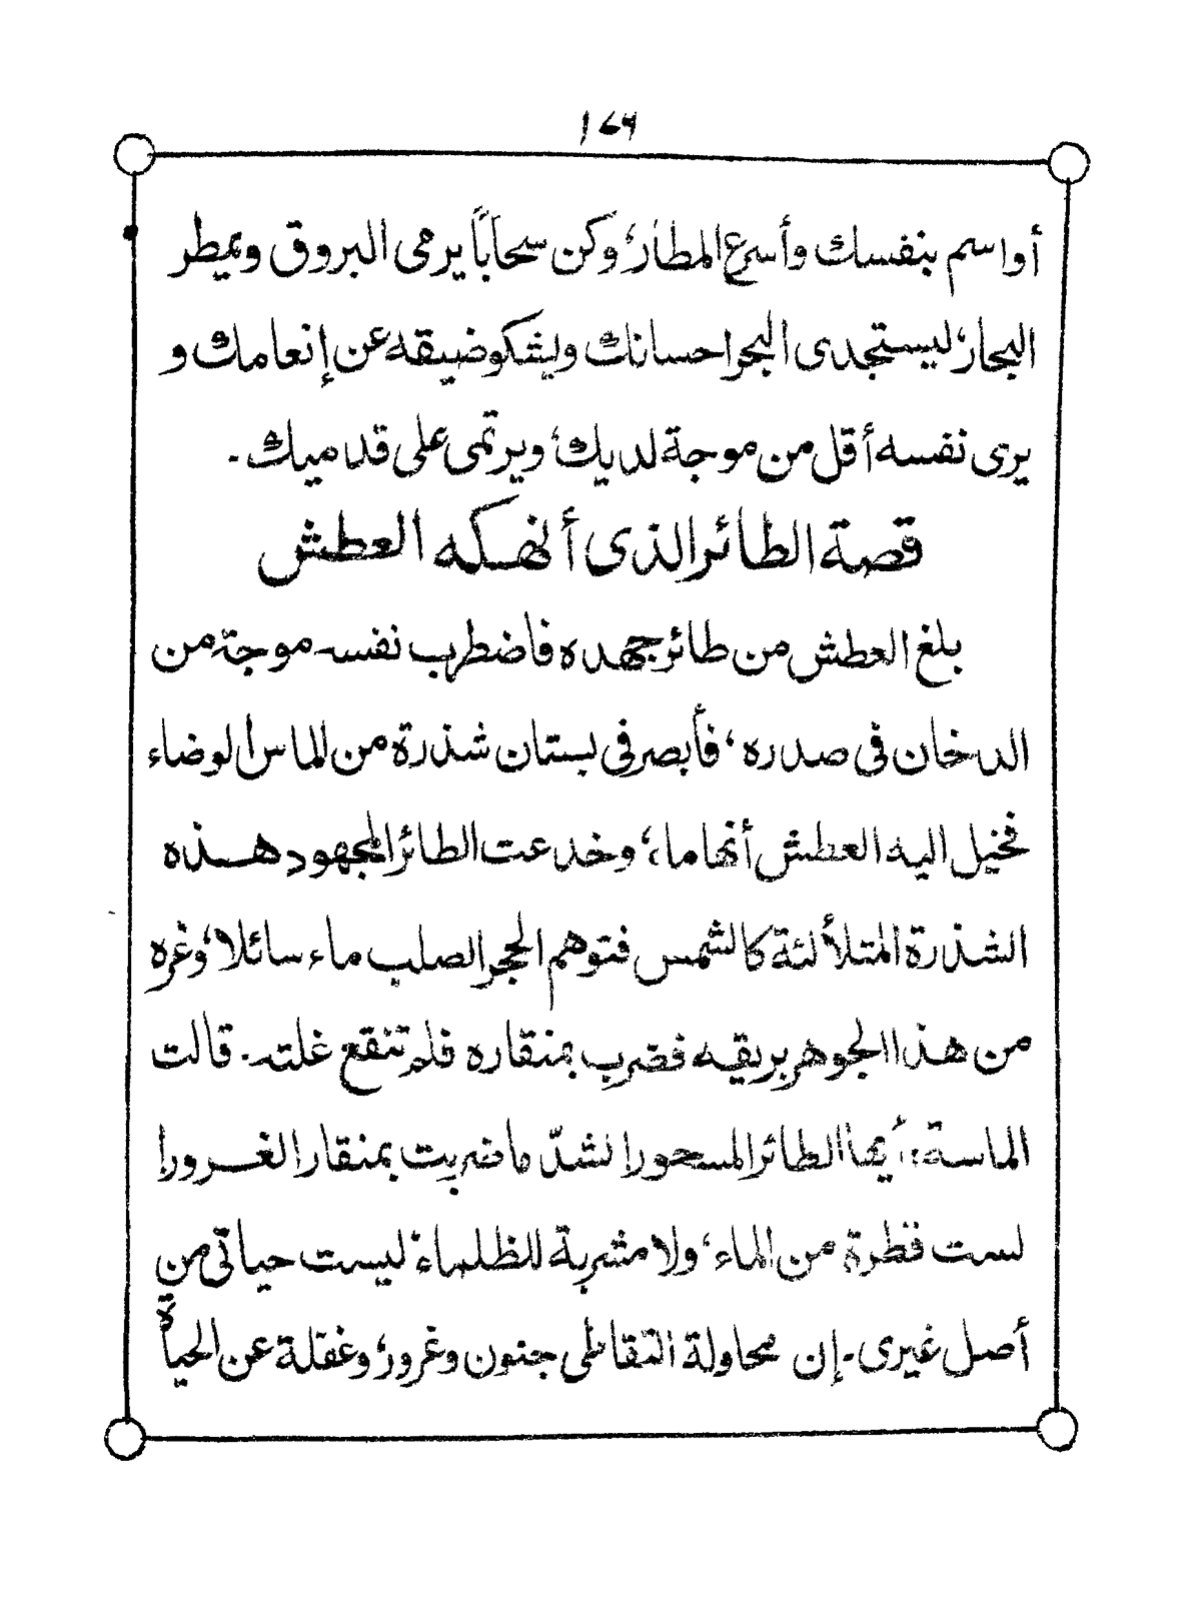 ١٤٩
أواسم بنفسك وأسرع المطار، وكن سحاباً يرمى البروق ويمطر
البحار، ليستجدى البحر احسانك ويشكو ضيقه عن إنعامك و
يرى نفسه أقل من موجة لديك، ويرتمى على قدميك .
قصة الطائر الذى أنهكه العطش
بلغ العطش من طائر جهده فاضطرب نفسه موجة من
الدخان فى صدره، فأبصر فى بستان شذرة من الماس الوضاء
فخيل اليه العطش أنها ماء، وخدعت الطائر المجهود هذه
الشذرة المتلألئة كالشمس فتوهم الحجر الصلب ماء سائلا، وغره
من هذا الجوهر بريقه فضرب بمنقاره فلم تنقع غلته . قالت
الماسة : أيها الطائر المسحور! لشدّ ما ضربت بمنقار الغرور!
لست قطرة من الماء، ولا مشربة للظلماء، ليست حياتى من
أصل غيرى . إن محاولة التقاطى جنون وغرور، وغفلة عن الحياة